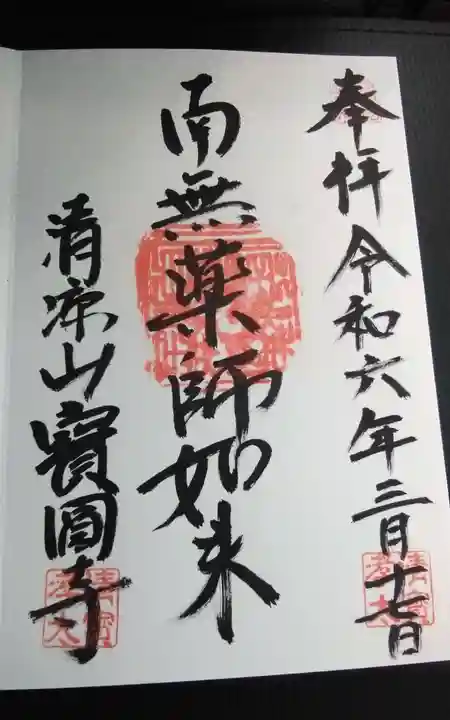 奉拝 令和六年三月十七日
南無薬師如来
清凉山寳圓寺